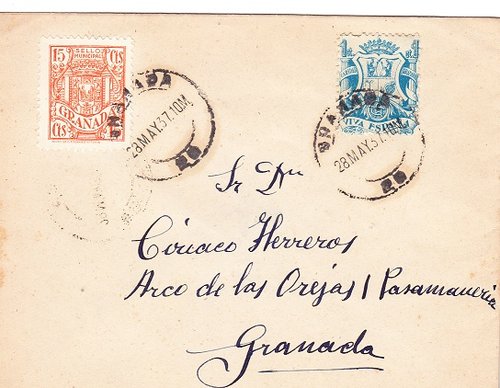 15 SELLO MUNICIPAL Cts
GRANADA
Cts
GRANADA
28 MAY.37.10M.
VIVA ESPAÑA
GRANADA
28 MAY.37.10M.
Sr Dn
Ciriaco Herreros
Arco de las Orejas / Pasamaneria
Granada